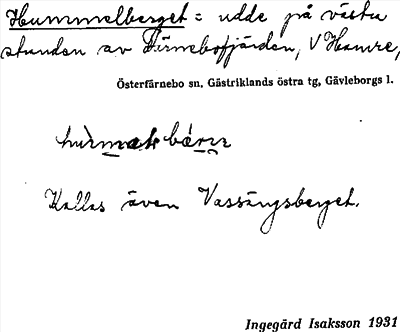 Hummelberget = udde på västra
stranden av Färnebofjärden, V Hamre,
Österfärnebo sn, Gästriklands östra tg, Gävleborgs l.
Kallas även Vassängsberget.
Ingegärd Isaksson 1931